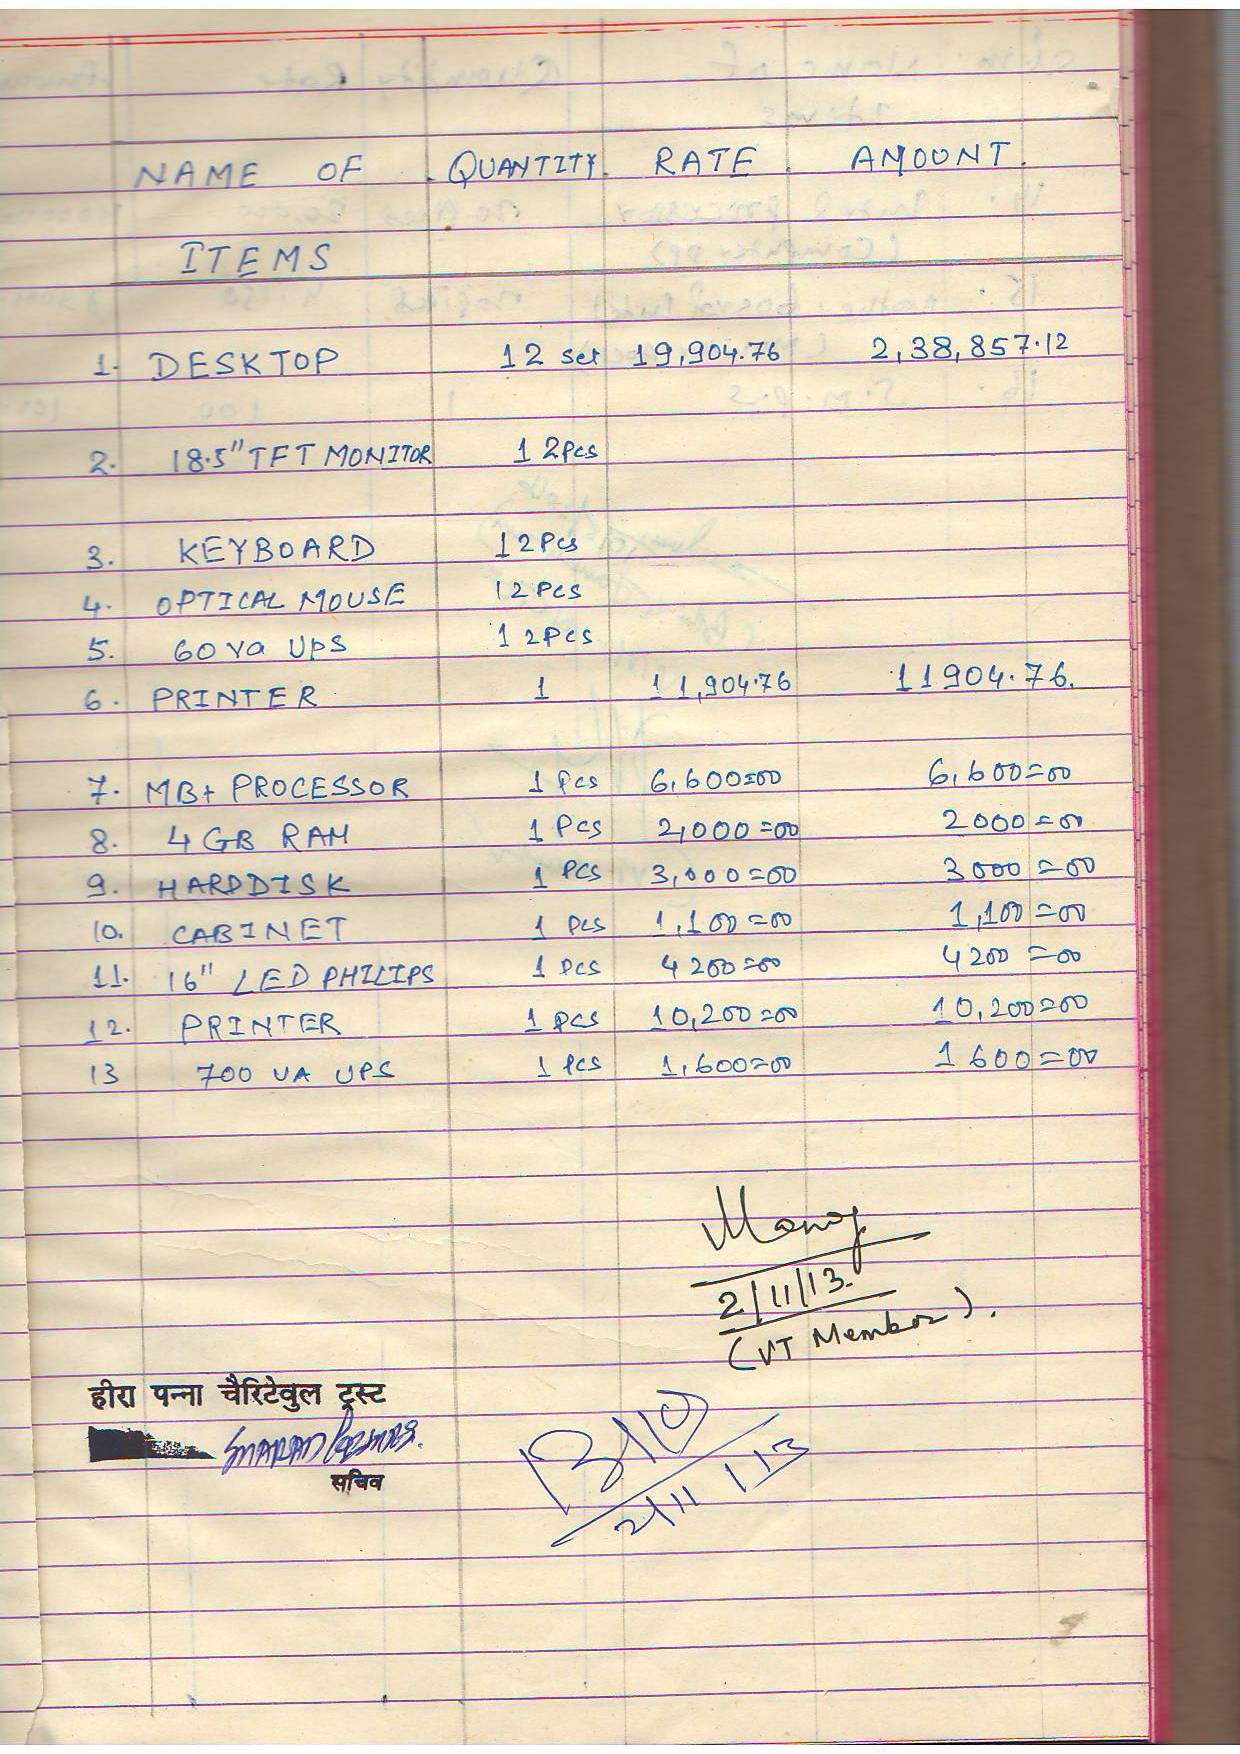 NAME OF QUANTITY. RATE. AMOUNT.
ITEMS
1. DESKTOP 12 set 19,904.76 2,38,857.12
2. 18.5" TFT MONITOR 12Pcs
3. KEYBOARD 12Pcs
4. OPTICAL MOUSE 12Pcs
5. 60 va UPS 12Pcs
6. PRINTER 1 11,904.76 11904.76.
7. MB+ PROCESSOR 1 Pcs 6,600=00 6,600=00
8. 4 GB RAM 1 Pcs 2,000=00 2000=00
9. HARDDISK 1 Pcs 3,000=00 3000=00
10. CABINET 1 Pcs 1,100=00 1,100=00
11. 16" LED PHILIPS 1 Pcs 4200=00 4200=00
12. PRINTER 1 Pcs 10,200=00 10,200=00
13 700 VA UPS 1 Pcs 1,600=00 1600=00
Manoj
2/11/13.
(VT Member).
हीरा पन्ना चैरिटेवुल ट्रस्ट
सचिव
2/11/13